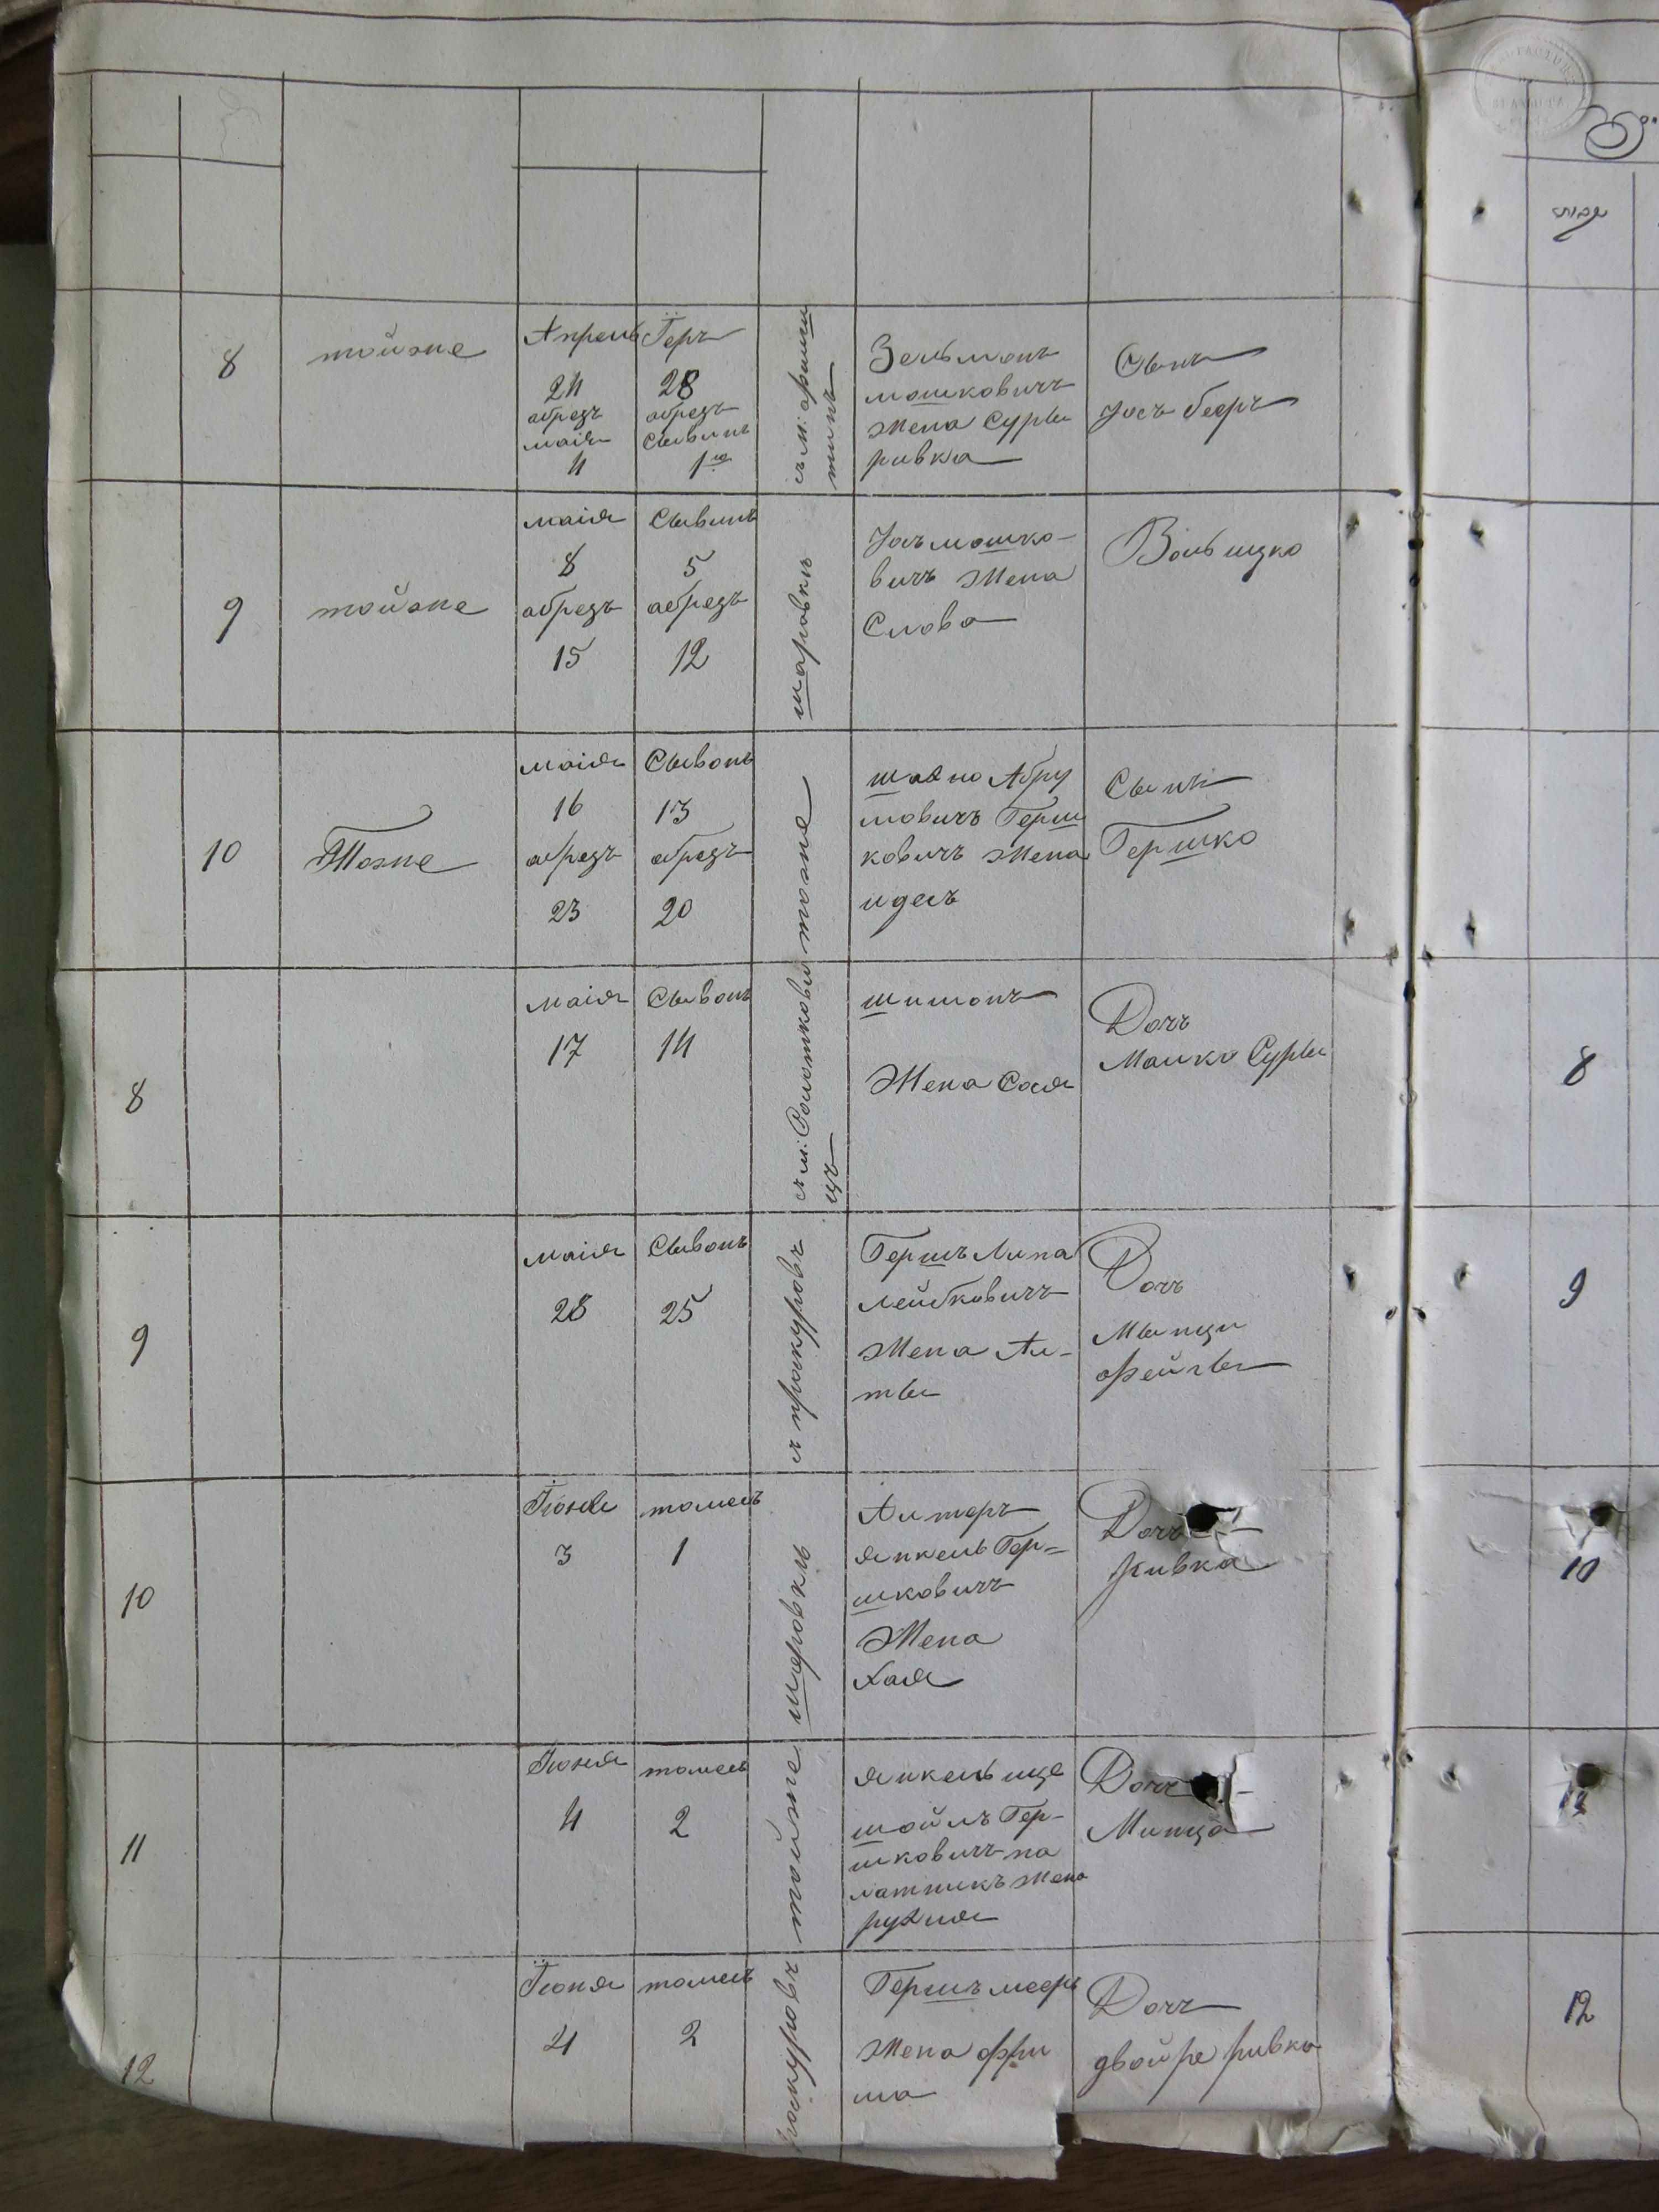 8
тойже
Апрель
24
абрезъ
маія
4
Iеръ
28
абрезъ
Сывинъ
1го
Зельмонъ
мошковичъ
Жена Суры
ривка
Сынъ
Іосъ беръ
9
тойже
маія
8
абрезъ
15
Сывинъ
5
абрезъ
12
шаровкъ
Іосъ мошко-
вичъ Жена
Слова
Вольицко
10
Тоже
маія
16
абрезъ
23
Сывонъ
13
абрезъ
20
тоже
Абру
мовичъ Герш
ковичъ Жена
идесъ
Сынъ
Гершко
8
маія
17
Сывонъ
14
съ м: Соломковы
цъ
шимонъ
Жена Сося
Дочъ
Малко Суры
8
9
маія
28
Сывонъ
25
съ проскуровъ
Гершъ Липа
лейбковичъ
Жена Ал-
ты
Дочъ
Мынци
фейгы
9
10
Iюня
3
томесъ
1
шаровкъ
Алтеръ
янкель Гер-
шковичъ
Жена
Хая
Дочъ
Ривка
10
11
Iюня
4
томесъ
2
тойже
янкель ице
шойлъ Гер-
шковичъ па
латникъ Жена
рухля
Дочъ
Минца
11
12
Iюня
4
томесъ
2
проскуровъ
Гершъ меерь
Жена фри
ма
Дочъ
двойре ривка
12